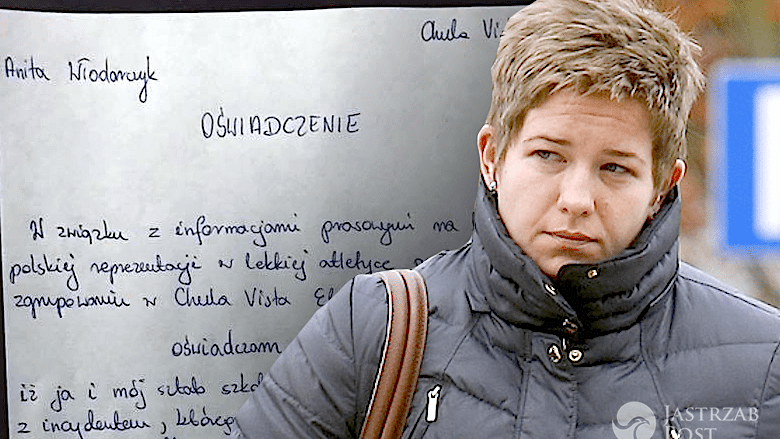 Chula
Anita Włodarczyk
OŚWIADCZENIE
W związku z informacjami prasowymi na
polskiej reprezentacji w lekkiej atletyce
zgrupowaniu w Chula Vista
oświadczam
iż ja i mój sztab
z incydentem, którego
JASTRZAB
POST